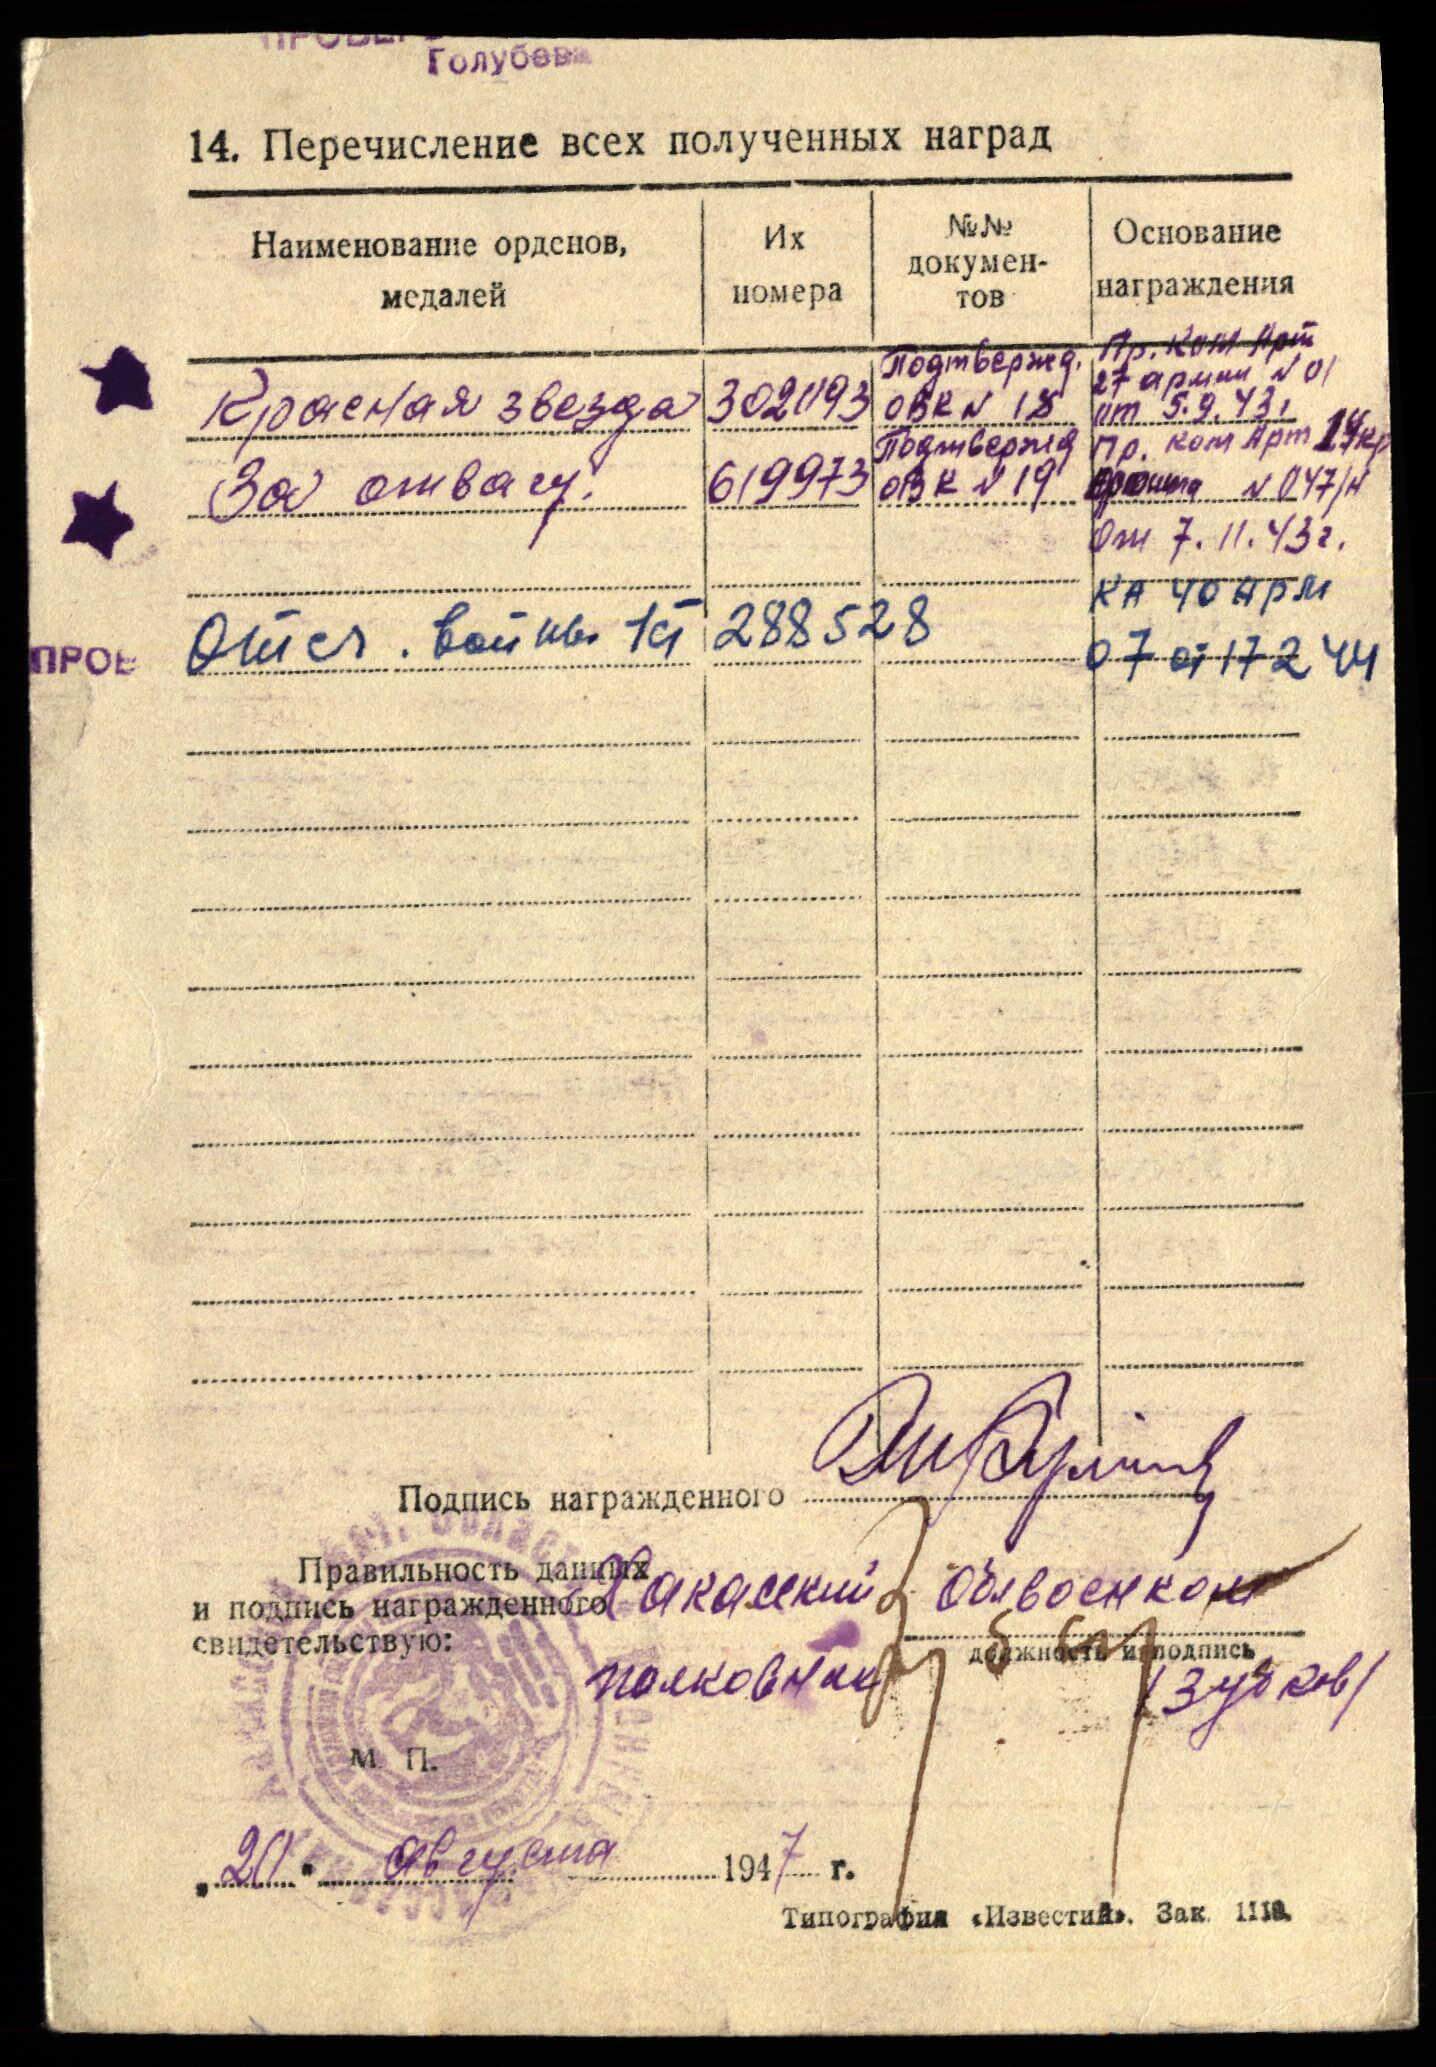 Голубева
14. Перечисление всех полученных наград
Наименование орденов, медалей
Их номера
№№ докумен-тов
Основание награждения
Красная звезда 3021193 Подтвержд. ОВК N 18 Пр. Ком Арт 27 армии N 01 от 5.9.43г
За отвагу. 619973 Подтвержд ОВК N 19 Пр. Ком Арт 1 Укр фронта N 047/н
От 7.11.43г.
Отеч. Войны 1 ст 288528 КА 40 Арм
07 от 17 2 44
ПРОВ
Подпись награжденного
Правильность данных Хакасский Облвоенком
и подпись награжденного
свидетельствую:
должность и подпись
полковник /Зубков/
М. П.
„20" августа 1947 г.
Типография «Известия». Зак.